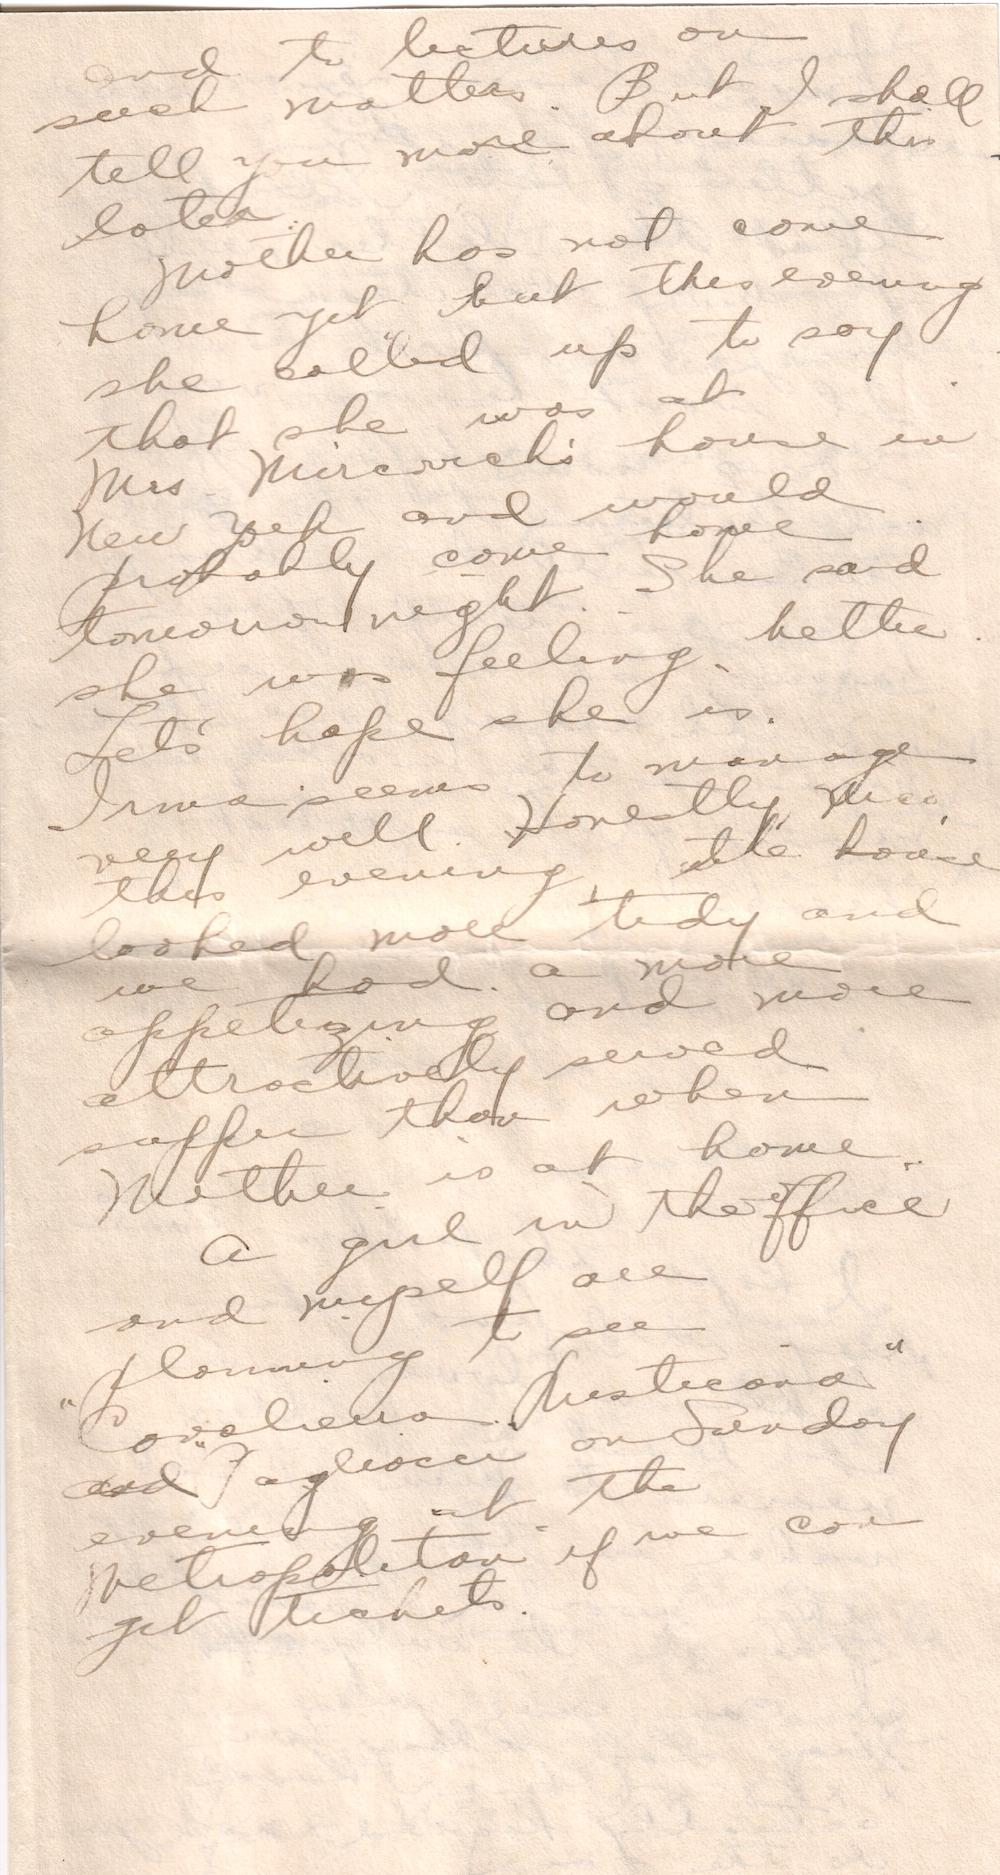 and to lectures on
such matters. But I shall
tell you more about this
later.
Mother has not come
home yet but this evening
she called up to say
that she was at
Mrs. house in
New York and would
probably come home
tomorrow night. She said
she was feeling better.
Let's hope she is.
Irma seems to manage
very well. Honestly,
this evening, the house
looked more tidy and
we had a more
appetizing and more
attractively served
supper than when
Mother is at home.
A girl in the office
and myself are
planning to see
"Cavalleria Rusticana"
and "Pagliacci on Sunday
evening at the
Metropolitan if we can
get tickets.